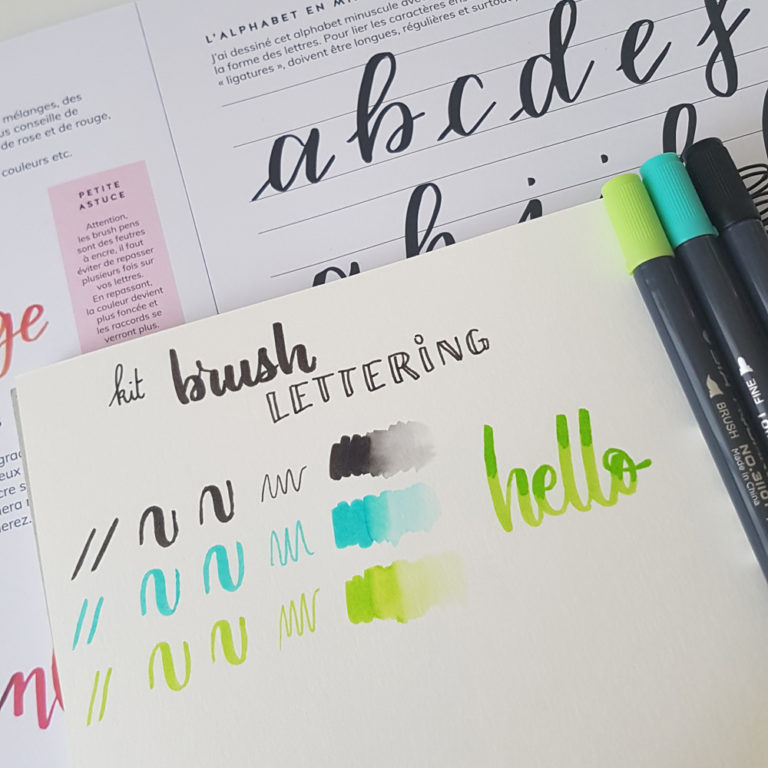 L'ALPHABET EN
J'ai dessiné cet alphabet minuscule
la forme des lettres. Pour lier les caractères
« ligatures », doivent être longues, régulières et surtout
a b c d e f
mélanges, des
conseille de
de rose et de rouge,
couleurs etc.
PETITE
ASTUCE
Attention,
les brush pens
sont des feutres
à encre, il faut
éviter de repasser
plusieurs fois sur
vos lettres.
En repassant,
la couleur devient
plus foncée et
les raccords se
verront plus.
kit brush
LETTERING
hello
BRUSH
Made in China
FINE